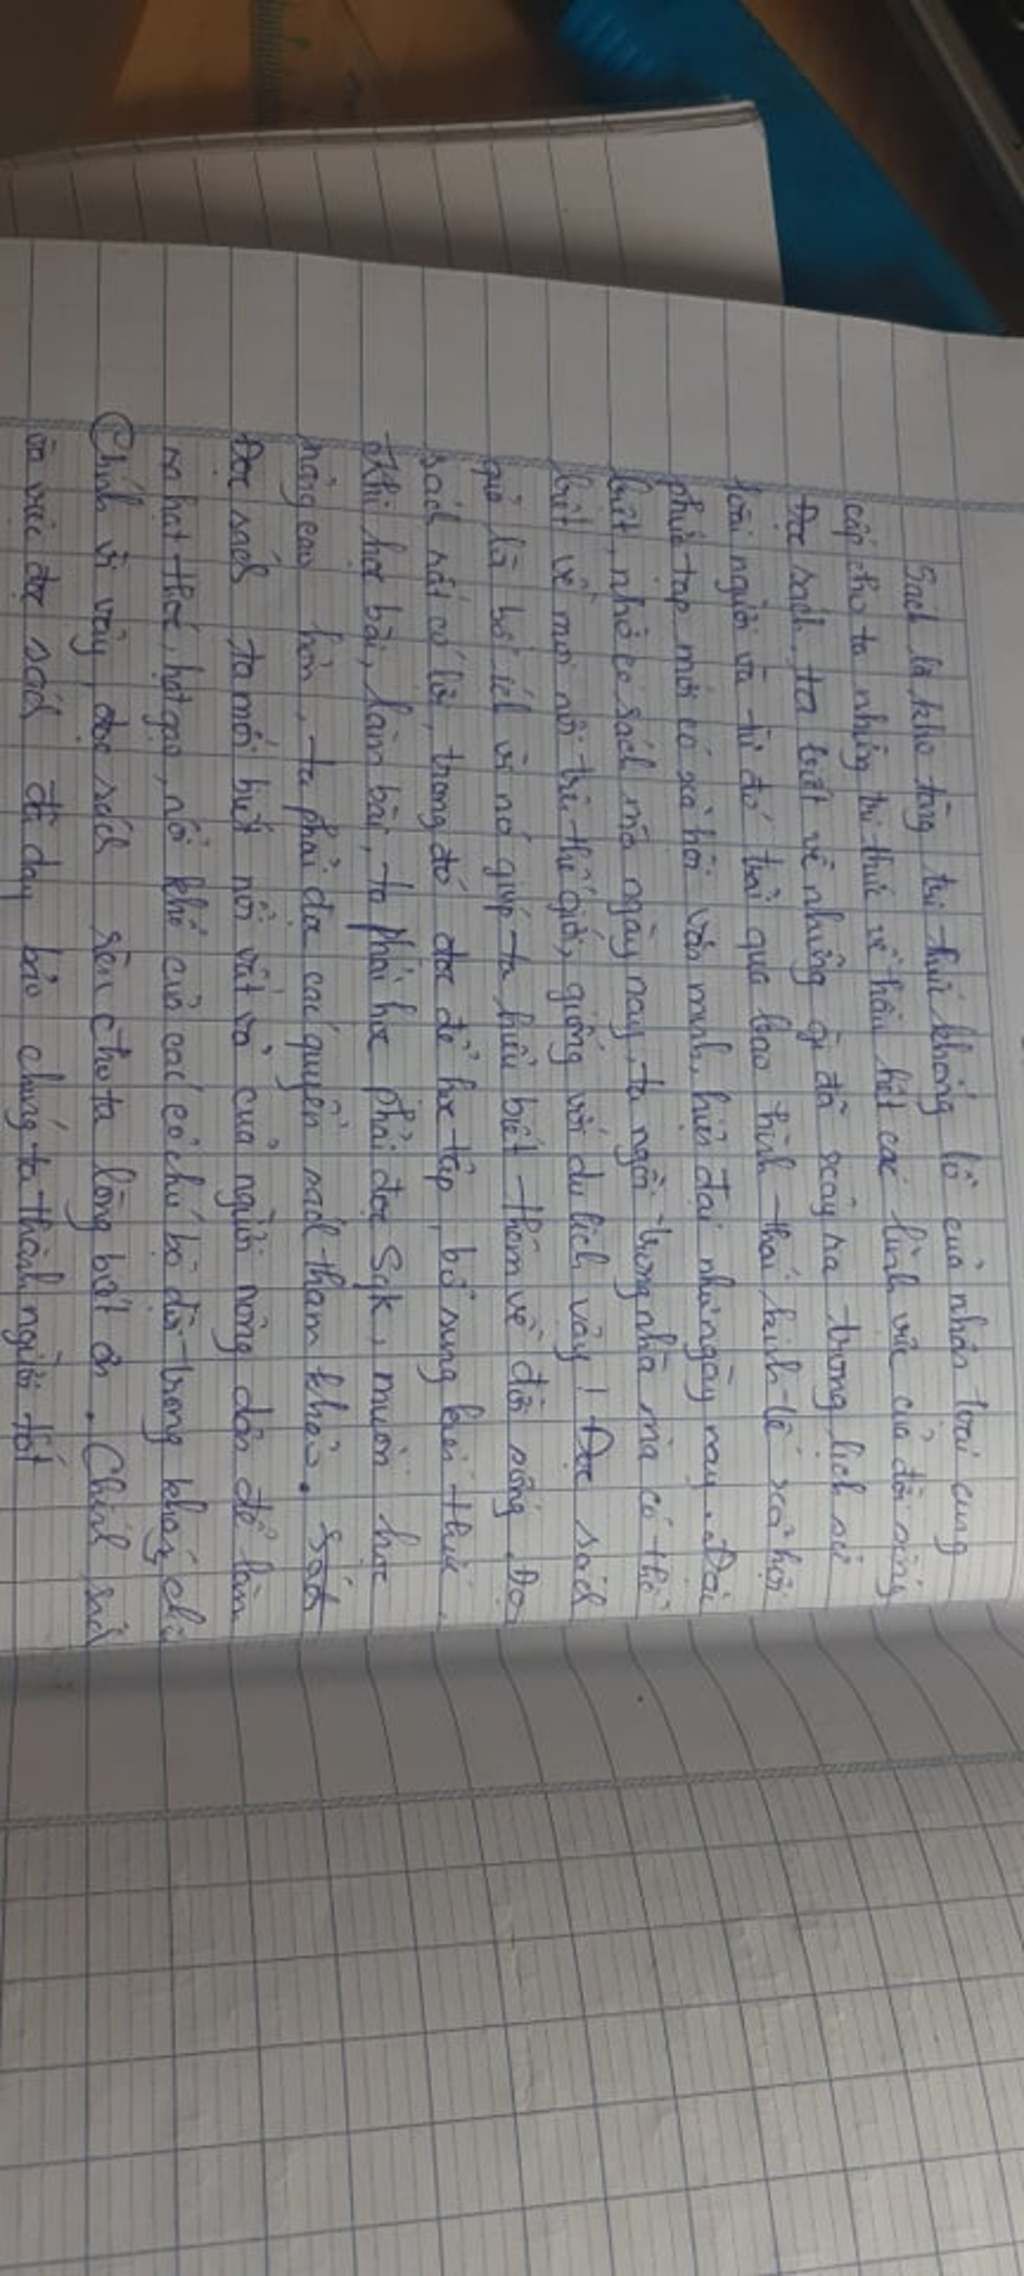 Sách là kho tàng tri thức khổng lồ của nhân loại cung
cấp cho ta những tri thức về hầu hết các lĩnh vực của đời sống
Đọc sách, ta biết về những gì đã xảy ra trong lịch sử
loài người và từ đó trải qua bao hình thái kinh tế xã hội
phức tạp mới có xã hội văn minh, hiện đại như ngày nay. Đặc
biệt, nhờ có sách mà ngày nay, ta ngồi trong nhà mà có thể
biết về mọi nơi trên thế giới, giống với du lịch vậy! Đọc sách
quả là bổ ích vì nó giúp ta hiểu biết thêm về đời sống. Đọc
sách rất có lợi, trong đó đọc để học tập, bổ sung kiến thức.
Khi học bài, làm bài, ta phải học phải đọc SGK, muốn học
nâng cao hơn, ta phải đọc các quyển sách tham khảo. Sách
Đọc sách, ta mới biết nỗi vất vả của người nông dân để làm
ra hạt thóc, hạt gạo, nỗi khổ của các cô chú bộ đội trong kháng chiến
Chính vì vậy, đọc sách sẽ cho ta lòng biết ơn. Chính sách
và việc đọc sách đã dạy bảo chúng ta thành người tốt